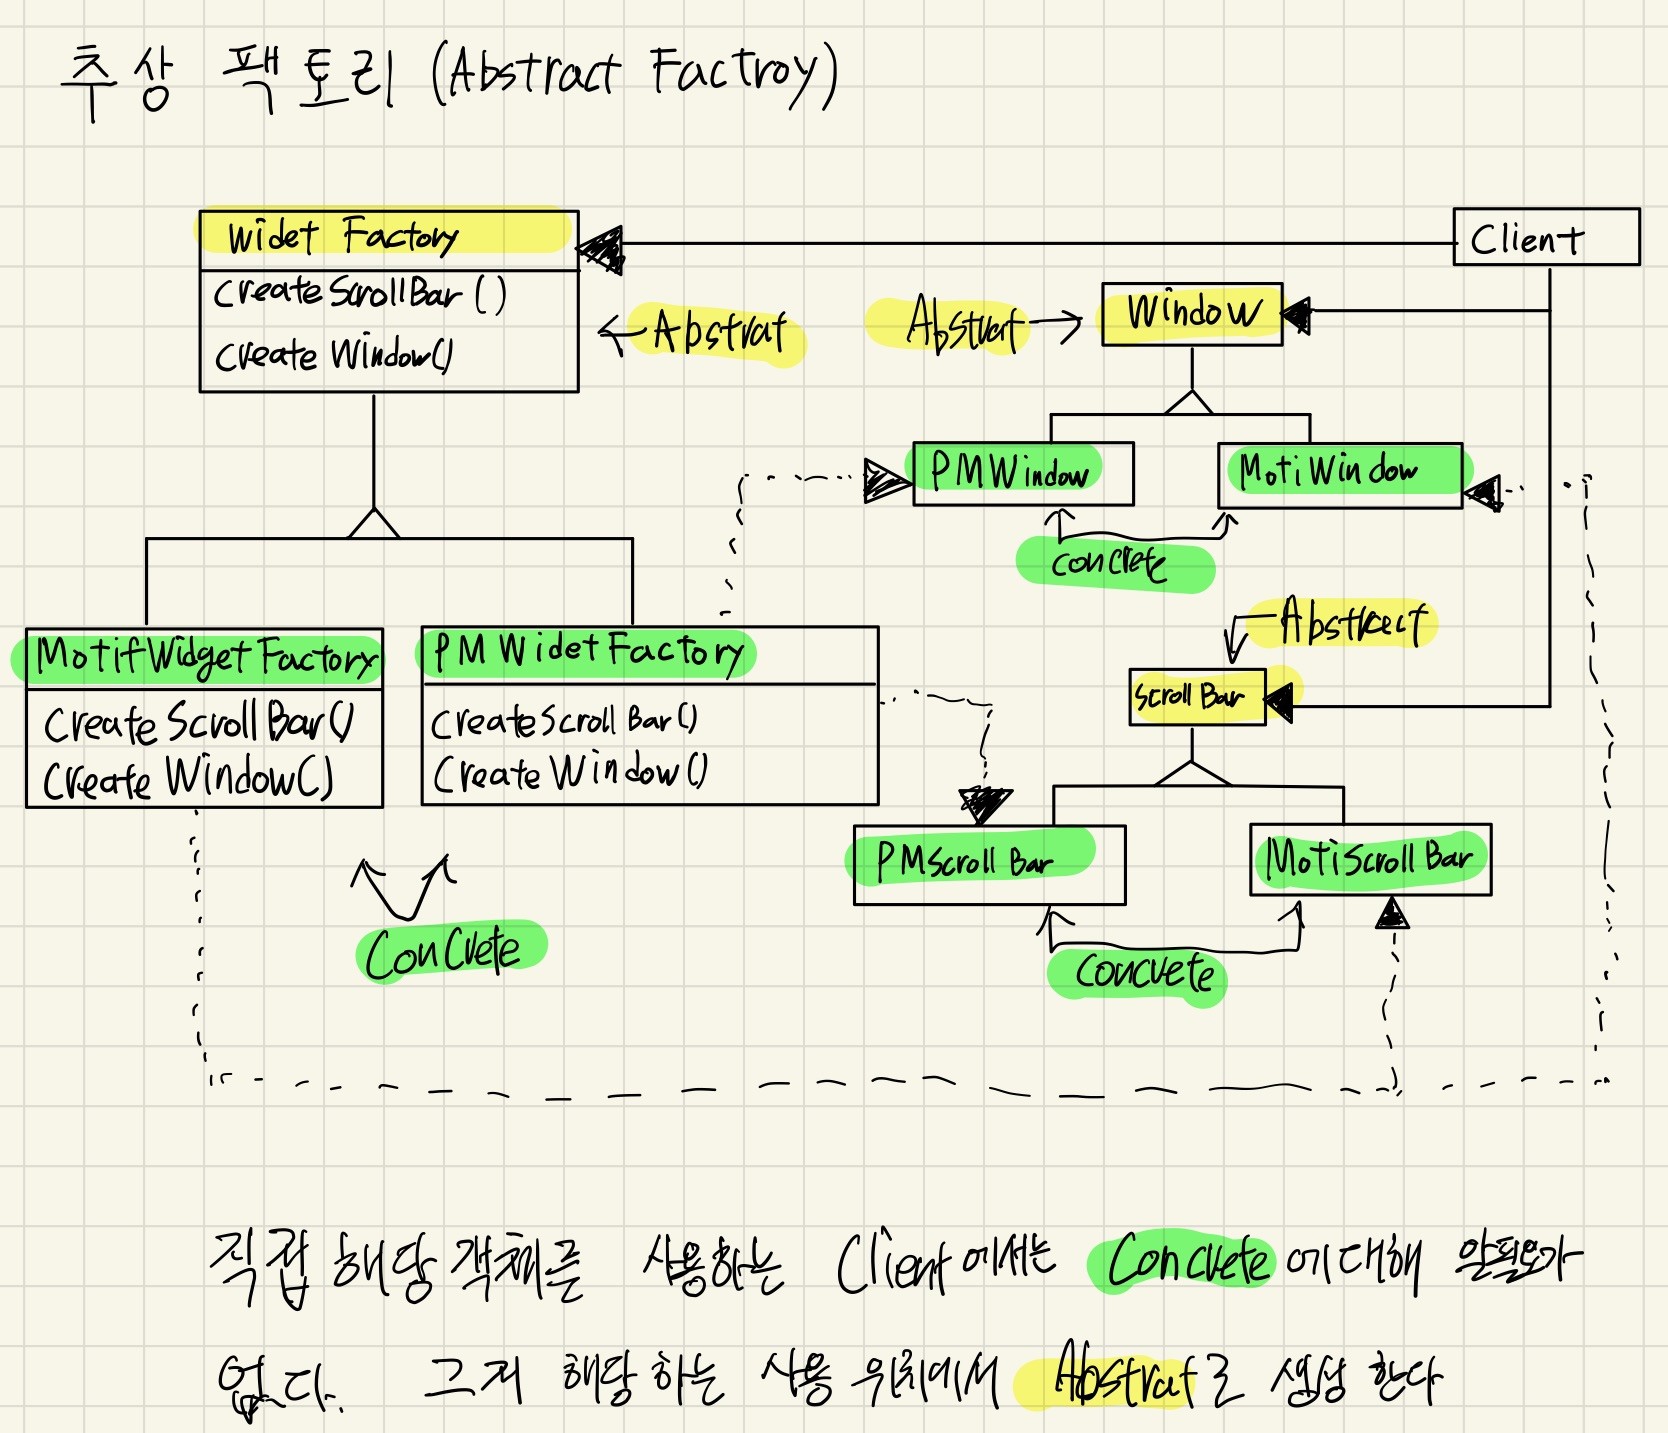 추상 팩토리 (Abstract Factroy)
Widet Factory
Create ScrollBar ()
Create Window()
Abstrat
Client
Abstrat
Window
PMWindow
MotiWindow
Concrete
Abstrect
Scroll Bar
PMScroll Bar
MotiScroll Bar
Concrete
MotifWidget Factory
Create Scroll Bar()
Create Window()
PM Widet Factory
Create Scroll Bar()
Create Window()
Concrete
직접 해당 객체를 사용하는 Client에서는 Concrete에 대해 알필요가
없다. 그저 해당하는 사용 위치에서 Abstrat로 생성 한다